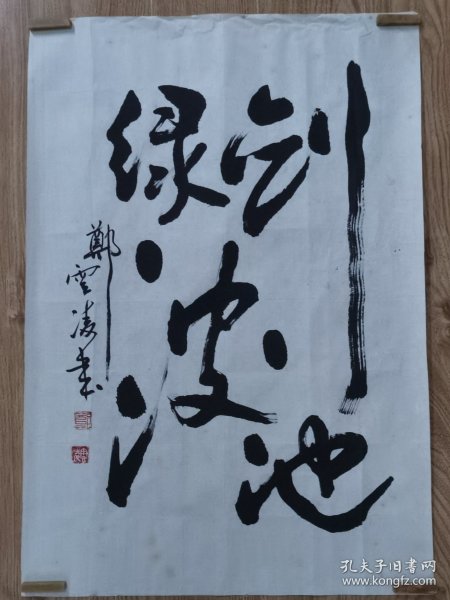 剑池
绿波
鄭雲凌書
孔夫子旧书网
www.kongfz.com